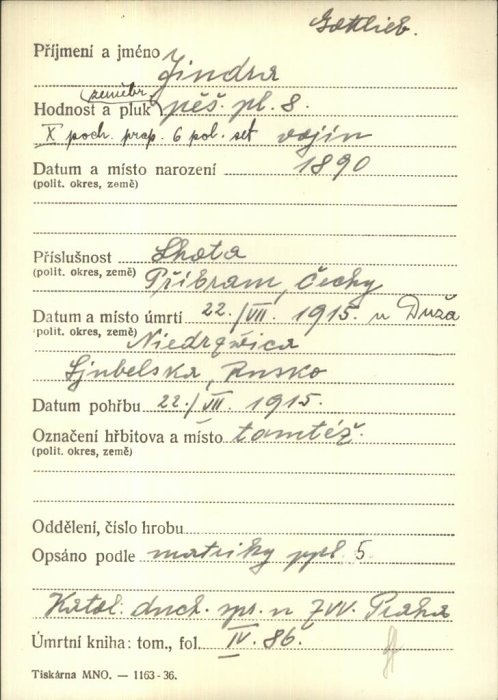 Gottlieb.
Příjmení a jméno Jindra
zeměbr.
Hodnost a pluk pěš. pl. 8.
X poch. prap. 6 pol. set. vojín
Datum a místo narození 1890
(polit. okres, země)
Příslušnost Lhota
(polit. okres, země) Příbram, Čechy
Datum a místo úmrtí 22./VII. 1915. u Duža
(polit. okres, země) Niedrzwica
Ljubelska, Rusko
Datum pohřbu 22./VII. 1915.
Označení hřbitova a místo tamtéž.
(polit. okres, země)
Oddělení, číslo hrobu
Opsáno podle matriky ppl 5.
Katol. duch. spr. u ZVV. Praha
Úmrtní kniha: tom., fol. IV. 86.
Tiskárna MNO. — 1163-36.